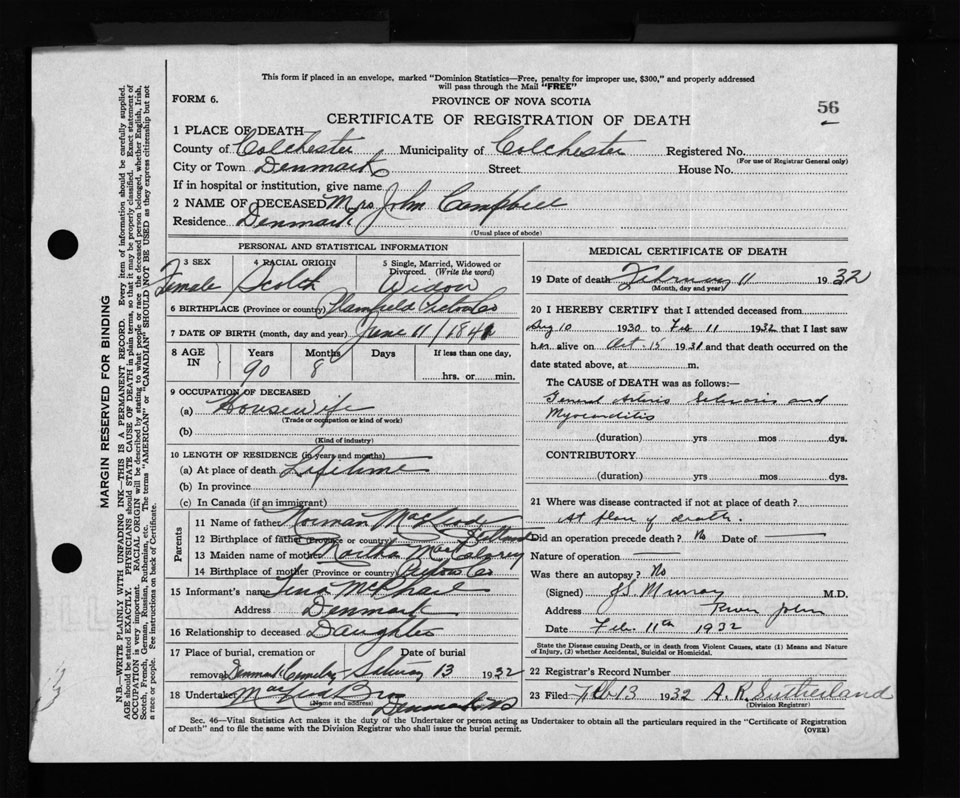 This form if placed in an envelope, marked "Dominion Statistics—Free, penalty for improper use, $300," and properly addressed
will pass through the Mail "FREE"
FORM 6.
PROVINCE OF NOVA SCOTIA
56
CERTIFICATE OF REGISTRATION OF DEATH
1 PLACE OF DEATH—
County of Colchester Municipality of Colchester Registered No.
(For use of Registrar General only)
City or Town Denmark Street House No.
If in hospital or institution, give name
2 NAME OF DECEASED Mrs John Campbell
Residence Denmark
(Usual place of abode)
PERSONAL AND STATISTICAL INFORMATION
3 SEX 4 RACIAL ORIGIN 5 Single, Married, Widowed or
Divorced. (Write the word)
Female Scotch Widow
6 BIRTHPLACE (Province or country) Plainfield Pictou Co
7 DATE OF BIRTH (month, day and year) June 11/1841
8 AGE IN Years Months Days If less than one day,
90 8 hrs. or min.
9 OCCUPATION OF DECEASED
(a) Housewife
(Trade or occupation or kind of work)
(b)
(Kind of industry)
10 LENGTH OF RESIDENCE (in years and months)
(a) At place of death Lifetime
(b) In province
(c) In Canada (if an immigrant)
Parents
11 Name of father Norman MacLeod
12 Birthplace of father (Province or country) Scotland
13 Maiden name of mother Martha
14 Birthplace of mother (Province or country) Pictou Co
15 Informant's name McPhail
Address Denmark
16 Relationship to deceased Daughter
17 Place of burial, cremation or Date of burial
removal Denmark Cemetery 13 1932
18 Undertaker MacLeod Bros
(Name and address) Denmark NS
MEDICAL CERTIFICATE OF DEATH
19 Date of death February 11 1932
(Month, day and year)
20 I HEREBY CERTIFY that I attended deceased from
Aug 10 1930 to Feb 11 1932 that I last saw
her alive on Oct 15 1931 and that death occurred on the
date stated above, at m.
The CAUSE of DEATH was as follows:—
General Arterio Sclerosis and
Myocarditis
(duration) yrs mos dys.
CONTRIBUTORY
(duration) yrs mos dys.
21 Where was disease contracted if not at place of death?
At place of death.
Did an operation precede death? No Date of —
Nature of operation —
Was there an autopsy? No
(Signed) Murray M.D.
Address River John
Date Feb. 11th 1932
State the Disease causing Death, or in death from Violent Causes, state (1) Means and Nature
of Injury, (2) whether Accidental, Suicidal or Homicidal.
22 Registrar's Record Number
23 Filed Feb 13 1932 A. R. Sutherland
(Division Registrar)
Sec. 46—Vital Statistics Act makes it the duty of the Undertaker or person acting as Undertaker to obtain all the particulars required in the "Certificate of Registration
of Death" and to file the same with the Division Registrar who shall issue the burial permit.
(OVER)
MARGIN RESERVED FOR BINDING
N.B.—WRITE PLAINLY WITH UNFADING INK—THIS IS A PERMANENT RECORD. Every item of information should be carefully supplied.
AGE should be stated EXACTLY. PHYSICIANS should STATE CAUSE OF DEATH in plain terms, so that it may be properly classified. Exact statement of
OCCUPATION is very important. RACIAL ORIGIN will be described by stating to what people or race the deceased person belonged, whether English, Irish,
Scotch, French, German, Russian, Ruthenian, etc. The terms "AMERICAN" or "CANADIAN" SHOULD NOT BE USED as they express citizenship but not
a race or people. See instructions on back of Certificate.